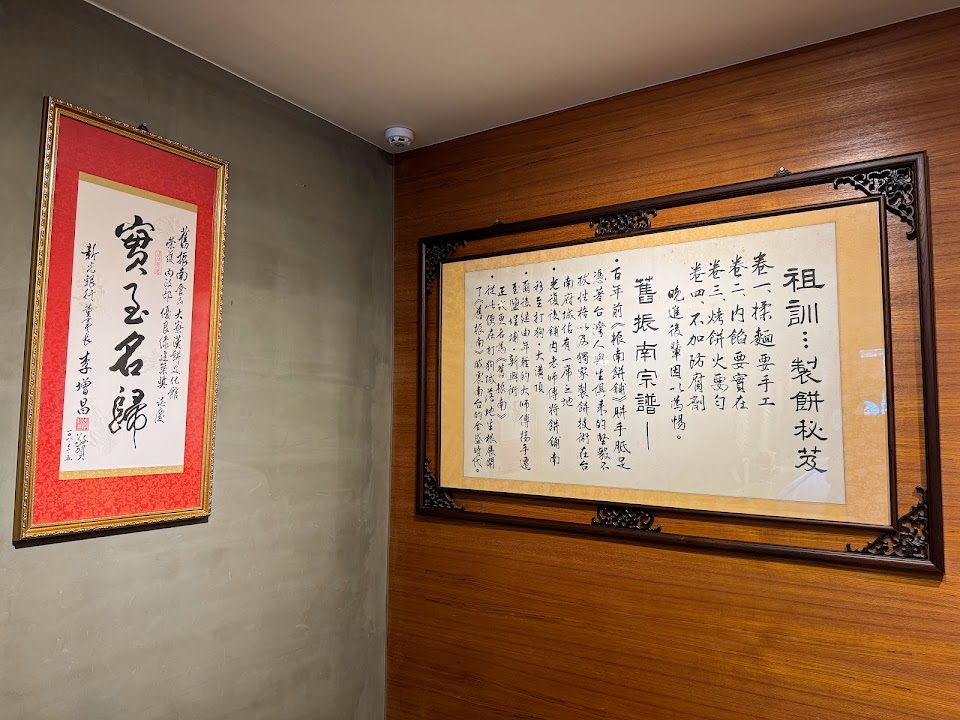 實至名歸
舊振南食品大寮漢餅文化館
榮獲內政部優良
建築獎 誌慶
新光銀行董事長 李增昌 敬賀
祖訓：製餅秘芨
卷一、揉麵要手工
卷二、內餡要實在
卷三、烤餅火要勻
卷四、不加防腐劑
晚進後輩因以為惕。
舊振南宗譜—
•百年前《振南餅舖》胼手胝足
憑著台灣人與生俱來的堅毅不
拔性格以及獨家製餅技術在台
南府城佔有一席之地
•光復後舖內老師傅將餅舖南
移至打狗•大溝頂
•爾後繼由年輕的大師傅接手遷
至鹽埕埔•新興街
正式更名為《舊振南》
•從此便在打狗城落地生根展開
了《舊振南》威震南台的全盛時代。